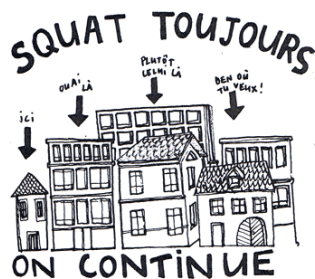 SQUAT TOUJOURS
ici
OUAI
LÀ
PLUTÔT
CELUI LÀ
BEN OÙ
TU VEUX!
ON CONTINUE